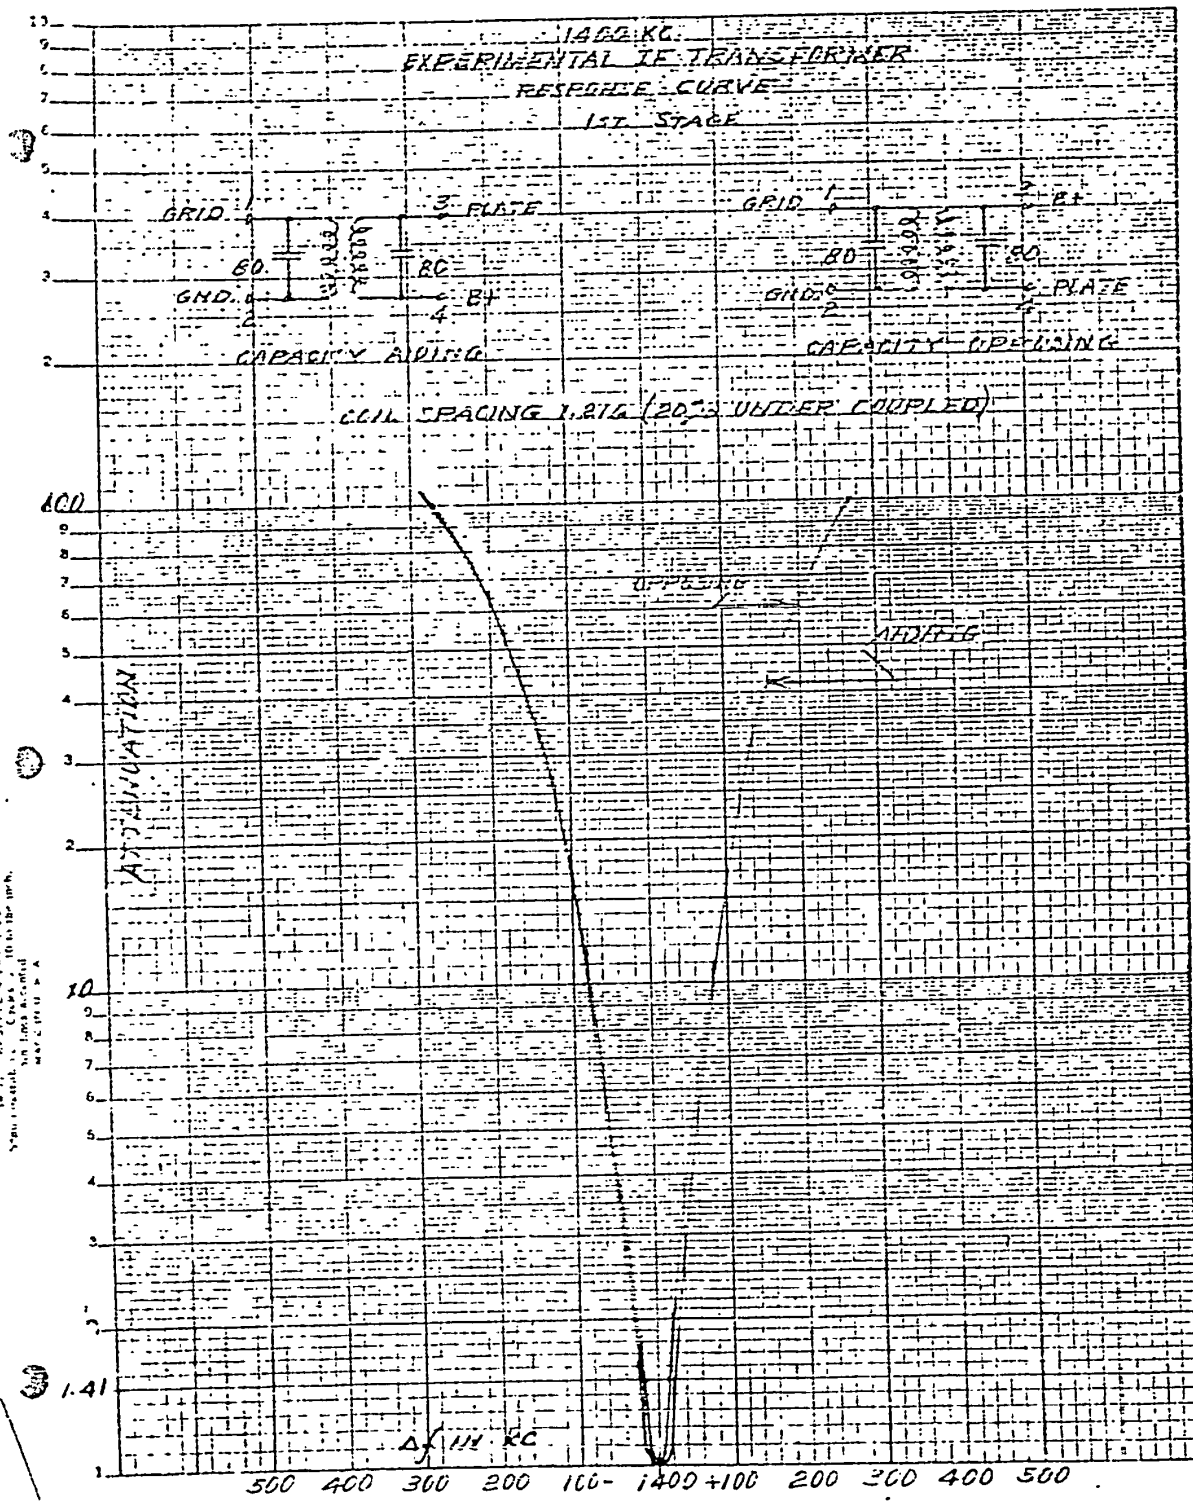 1400 KC
EXPERIMENTAL IF TRANSFORMER
RESPONSE CURVE
1ST. STAGE
10
9
8
7
6
5
4
3
2
GRID 1
3 PLATE
80
80
GND. 2
4 B+
CAPACITY AIDING
GRID 1
B+
80
80
GND. 2
PLATE
CAPACITY OPPOSING
COIL SPACING 1.216 (20% UNDER COUPLED)
100
9
8
7
6
5
4
3
2
OPPOSING
AIDING
ATTANUATION
10
9
8
7
6
5
4
3
2
1.41
1
Δf IN KC
500 400 300 200 100- 1400 +100 200 300 400 500